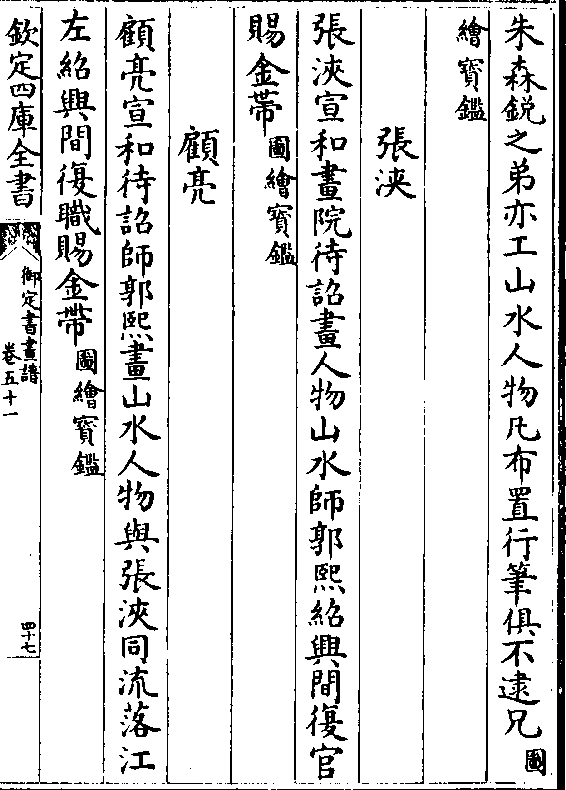 朱森銳之弟亦工山水人物凡布置行筆俱不逮兄圖
繪寳鑑
張浹
張浹宣和畫院待詔畫人物山水師郭熙紹興間復官
賜金帶圖繪寳鑑
顧亮
顧亮宣和待詔師郭熙畫山水人物與張浹同流落江
左紹興間復職賜金帶圖繪寳鑑
欽定四庫全書
御定書畫譜
卷五十一
四十七